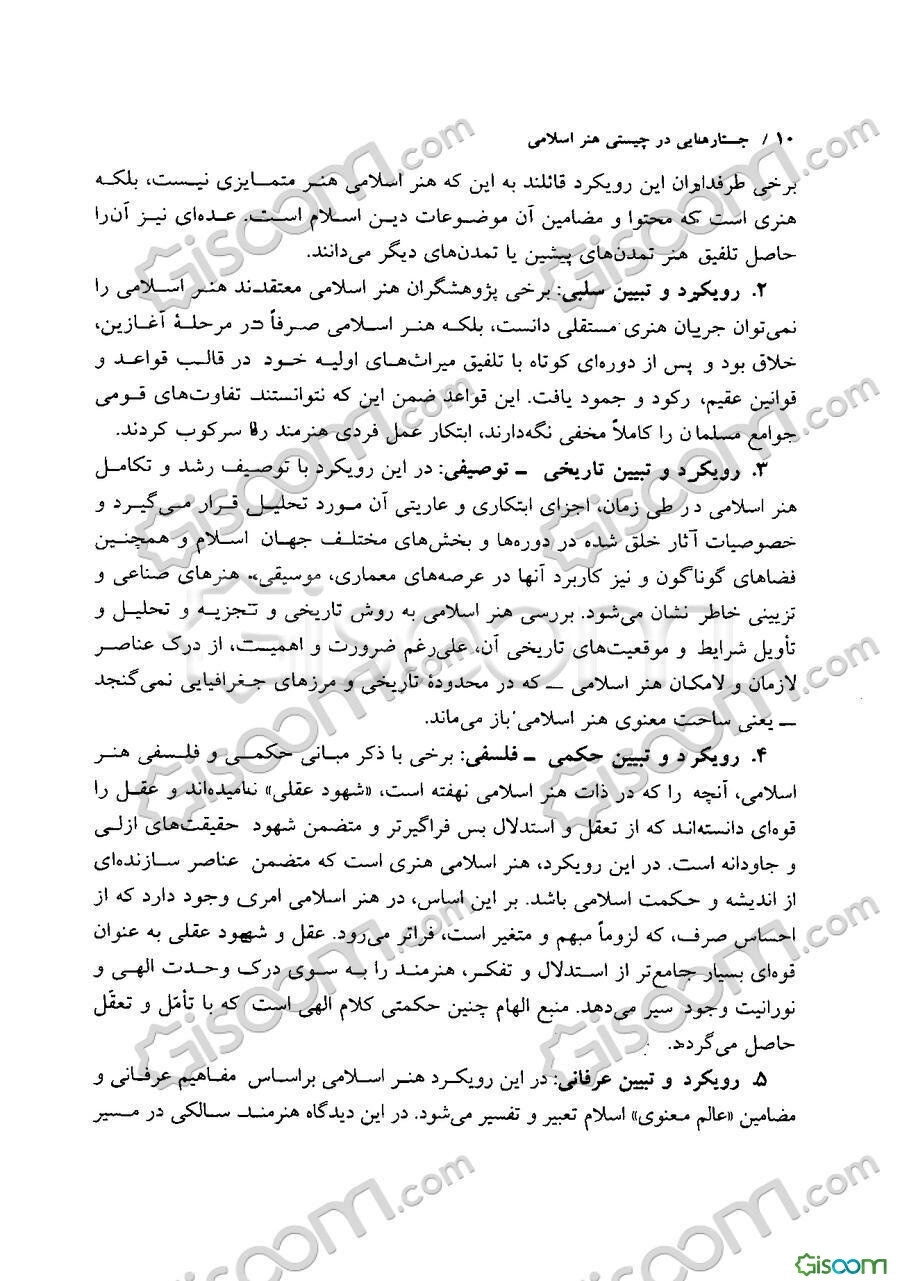 ۱۰ / جستارهایی در چیستی هنر اسلامی
برخی طرفداران این رویکرد قائلند به این که هنر اسلامی هنر متمایزی نیست، بلکه
هنری است که محتوا و مضامین آن موضوعات دین اسلام است. عده‌ای نیز آن‌را
حاصل تلفیق هنر تمدن‌های پیشین یا تمدن‌های دیگر می‌دانند.
۲. رویکرد و تبیین سلبی: برخی پژوهشگران هنر اسلامی معتقدند هنر اسلامی را
نمی‌توان جریان هنری مستقلی دانست، بلکه هنر اسلامی صرفاً در مرحلهٔ آغازین،
خلاق بود و پس از دوره‌ای کوتاه با تلفیق میراث‌های اولیه خود در قالب قواعد و
قوانین عقیم، رکود و جمود یافت. این قواعد ضمن این که نتوانستند تفاوت‌های قومی
جوامع مسلمان را کاملاً مخفی نگه‌دارند، ابتکار عمل فردی هنرمند را سرکوب کردند.
۳. رویکرد و تبیین تاریخی ـ توصیفی: در این رویکرد با توصیف رشد و تکامل
هنر اسلامی در طی زمان، اجزای ابتکاری و عاریتی آن مورد تحلیل قرار می‌گیرد و
خصوصیات آثار خلق شده در دوره‌ها و بخش‌های مختلف جهان اسلام و همچنین
فضاهای گوناگون و نیز کاربرد آنها در عرصه‌های معماری، موسیقی، هنرهای صناعی و
تزیینی خاطر نشان می‌شود. بررسی هنر اسلامی به روش تاریخی و تجزیه و تحلیل و
تأویل شرایط و موقعیت‌های تاریخی آن، علی‌رغم ضرورت و اهمیت، از درک عناصر
لازمان و لامکان هنر اسلامی ــ که در محدودهٔ تاریخی و مرزهای جغرافیایی نمی‌گنجد
ــ یعنی ساحت معنوی هنر اسلامی باز می‌ماند.
۴. رویکرد و تبیین حکمی ـ فلسفی: برخی با ذکر مبانی حکمی و فلسفی هنر
اسلامی، آنچه را که در ذات هنر اسلامی نهفته است، «شهود عقلی» نامیده‌اند و عقل را
قوه‌ای دانسته‌اند که از تعقل و استدلال بس فراگیرتر و متضمن شهود حقیقت‌های ازلی
و جاودانه است. در این رویکرد، هنر اسلامی هنری است که متضمن عناصر سازنده‌ای
از اندیشه و حکمت اسلامی باشد. بر این اساس، در هنر اسلامی امری وجود دارد که از
احساس صرف، که لزوماً مبهم و متغیر است، فراتر می‌رود. عقل و شهود عقلی به عنوان
قوه‌ای بسیار جامع‌تر از استدلال و تفکر، هنرمند را به سوی درک وحدت الهی و
نورانیت وجود سیر می‌دهد. منبع الهام چنین حکمتی کلام الهی است که با تأمّل و تعقّل
حاصل می‌گردد.
۵. رویکرد و تبیین عرفانی: در این رویکرد هنر اسلامی براساس مفاهیم عرفانی و
مضامین «عالم معنوی» اسلام تعبیر و تفسیر می‌شود. در این دیدگاه هنرمند سالکی در مسیر
Gisoom
Gisoom.com